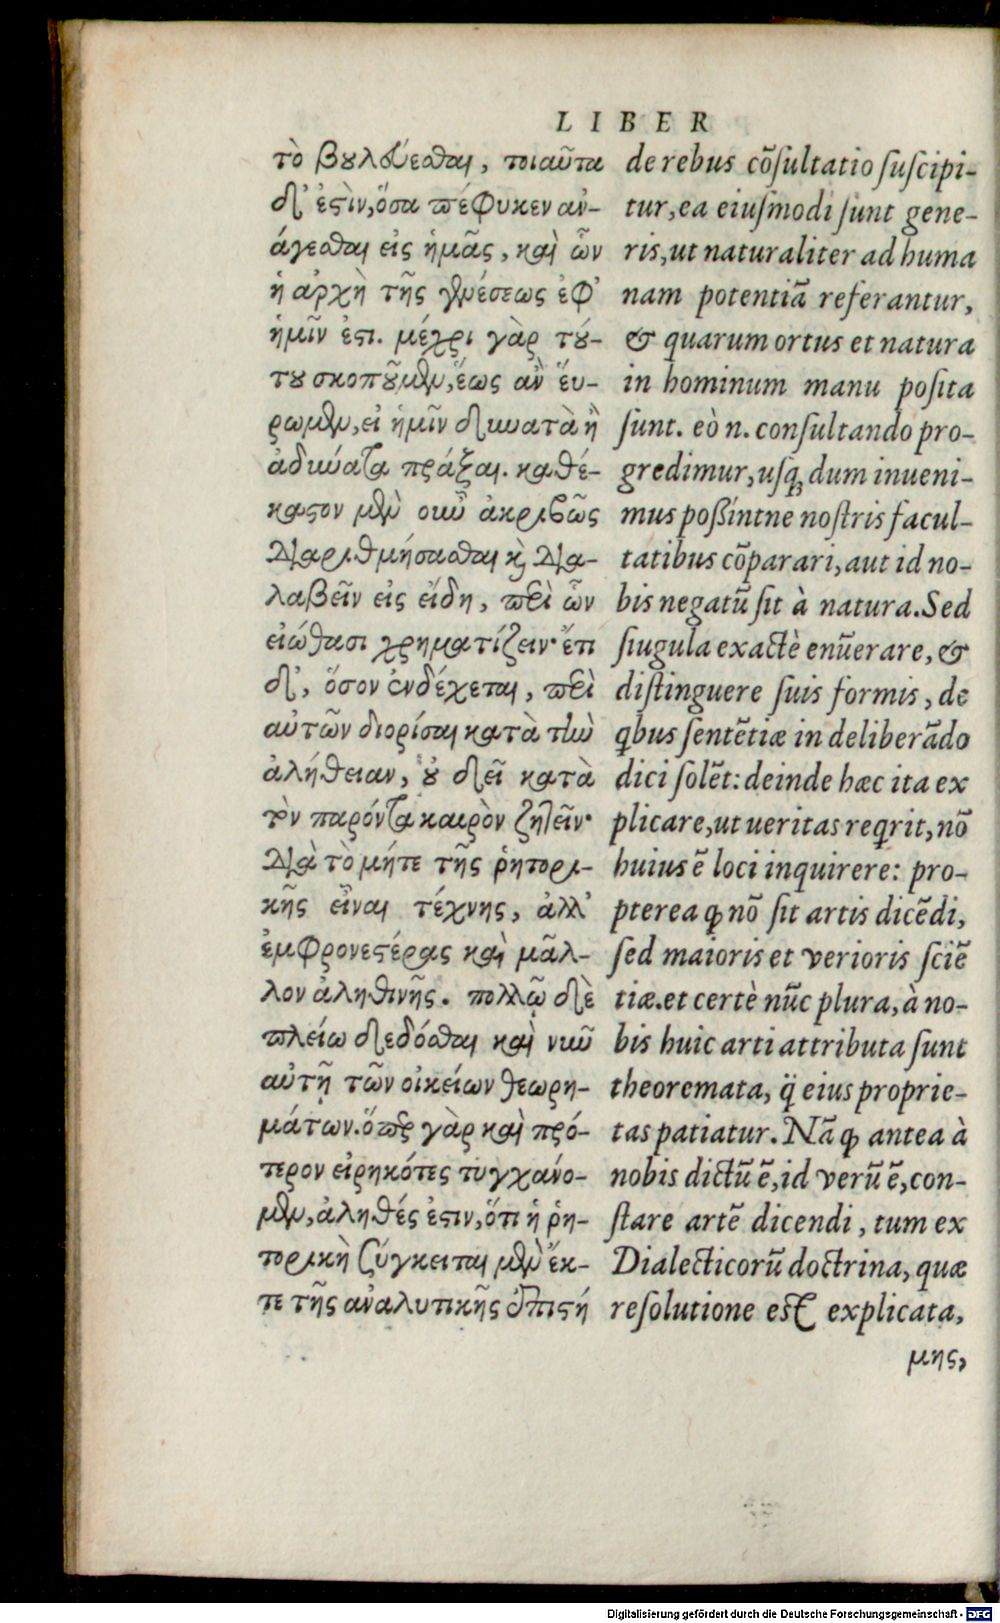 LIBER
τὸ βουλεύεσθαι, τοιαῦτα
δ' ἐστὶν, ὅσα πέφυκεν ἀν-
άγεσθαι εἰς ἡμᾶς, καὶ ὧν
ἡ ἀρχὴ τῆς γενέσεως ἐφ'
ἡμῖν ἐστι. μέχρι γὰρ τού-
του σκοποῦμεν, ἕως ἂν εὕ-
ρωμεν, εἰ ἡμῖν δυνατὰ ἢ
ἀδύνατα πρᾶξαι. καθέ-
καστον μὲν οὖν ἀκριβῶς
διαριθμήσασθαι κὶ δια-
λαβεῖν εἰς εἴδη, περὶ ὧν
εἰώθασι χρηματίζειν· ἔτι
δ', ὅσον ἐνδέχεται, περὶ
αὐτῶν διορίσαι κατὰ τὴν
ἀλήθειαν, οὐ δεῖ κατὰ
τὸν παρόντα καιρὸν ζητεῖν·
διὰ τὸ μήτε τῆς ῥητορι-
κῆς εἶναι τέχνης, ἀλλ'
ἐμφρονεστέρας καὶ μᾶλ-
λον ἀληθινῆς. πολλῷ δὲ
πλείω δεδόσθαι καὶ νῦν
αὐτῇ τῶν οἰκείων θεωρη-
μάτων. ὅπερ γὰρ καὶ πρό-
τερον εἰρηκότες τυγχάνο-
μεν, ἀληθές ἐστιν, ὅτι ἡ ῥη-
τορικὴ σύγκειται μὲν ἔκ-
τε τῆς ἀναλυτικῆς ἐπιστή
de rebus cōſultatio ſuſcipi-
tur, ea eiuſmodi ſunt gene-
ris, ut naturaliter ad huma
nam potentiā referantur,
& quarum ortus et natura
in hominum manu poſita
ſunt. eò n. conſultando pro-
gredimur, uſq; dum inueni-
mus poßintne noſtris facul-
tatibus cōparari, aut id no-
bis negatū ſit à natura. Sed
ſiugula exactè enūerare, &
diſtinguere ſuis formis, de
qbus ſentētiæ in deliberādo
dici ſolēt: deinde hæc ita ex
plicare, ut ueritas reqrit, nō
huius ē loci inquirere: pro-
pterea ꝙ nō ſit artis dicēdi,
ſed maioris et verioris ſciē
tiæ. et certè nūc plura, à no-
bis huic arti attributa ſunt
theoremata, q̈ eius proprie-
tas patiatur. Nā ꝙ antea à
nobis dictū ē, id verū ē, con-
ſtare artē dicendi, tum ex
Dialecticorū doctrina, quæ
reſolutione eſt explicata,
μης,
Digitalisierung gefördert durch die Deutsche Forschungsgemeinschaft - DFG